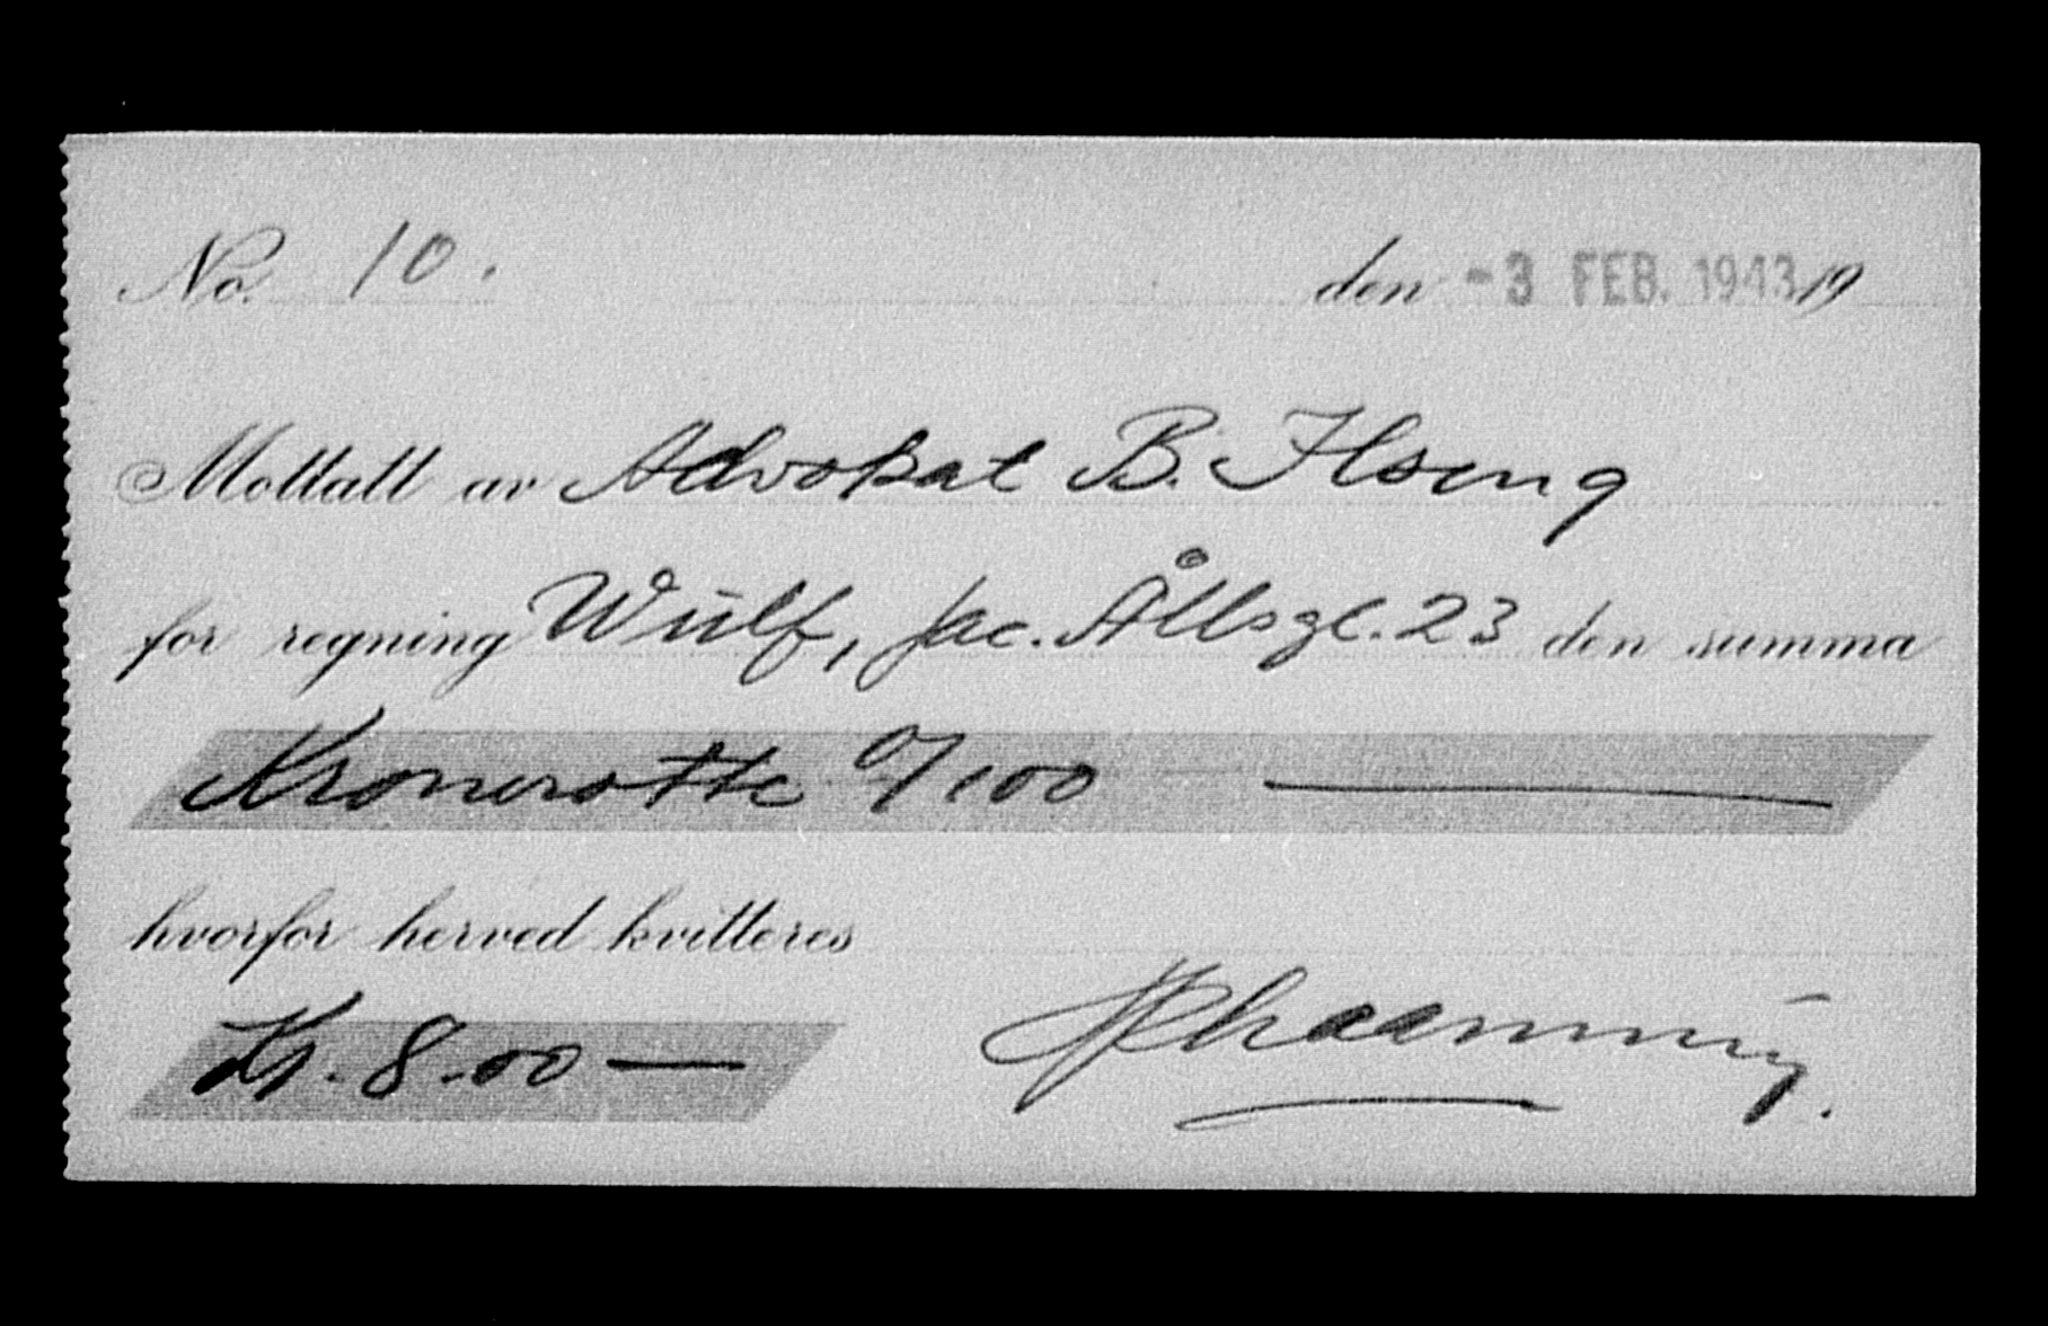 No. 10. den -3 FEB. 1943 19
Mottatt av Advokat B. Ilseng
for regning Wulf, Jac. Ållsgt. 23 den summa
Kronerotte 0/100
hvorfor herved kvitteres
Kr. 8.00